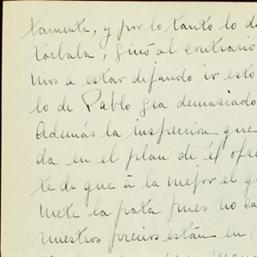 tamente, y por lo tanto lo de
torbaba, sinó al contrario
mos a estar dejando ir esto
lo de Pablo sea demasiado
Además la inspeccion que
da en el plan de él ofre
te de que á la mejor el g
mete la pata pues no ca
nuestros precios están en